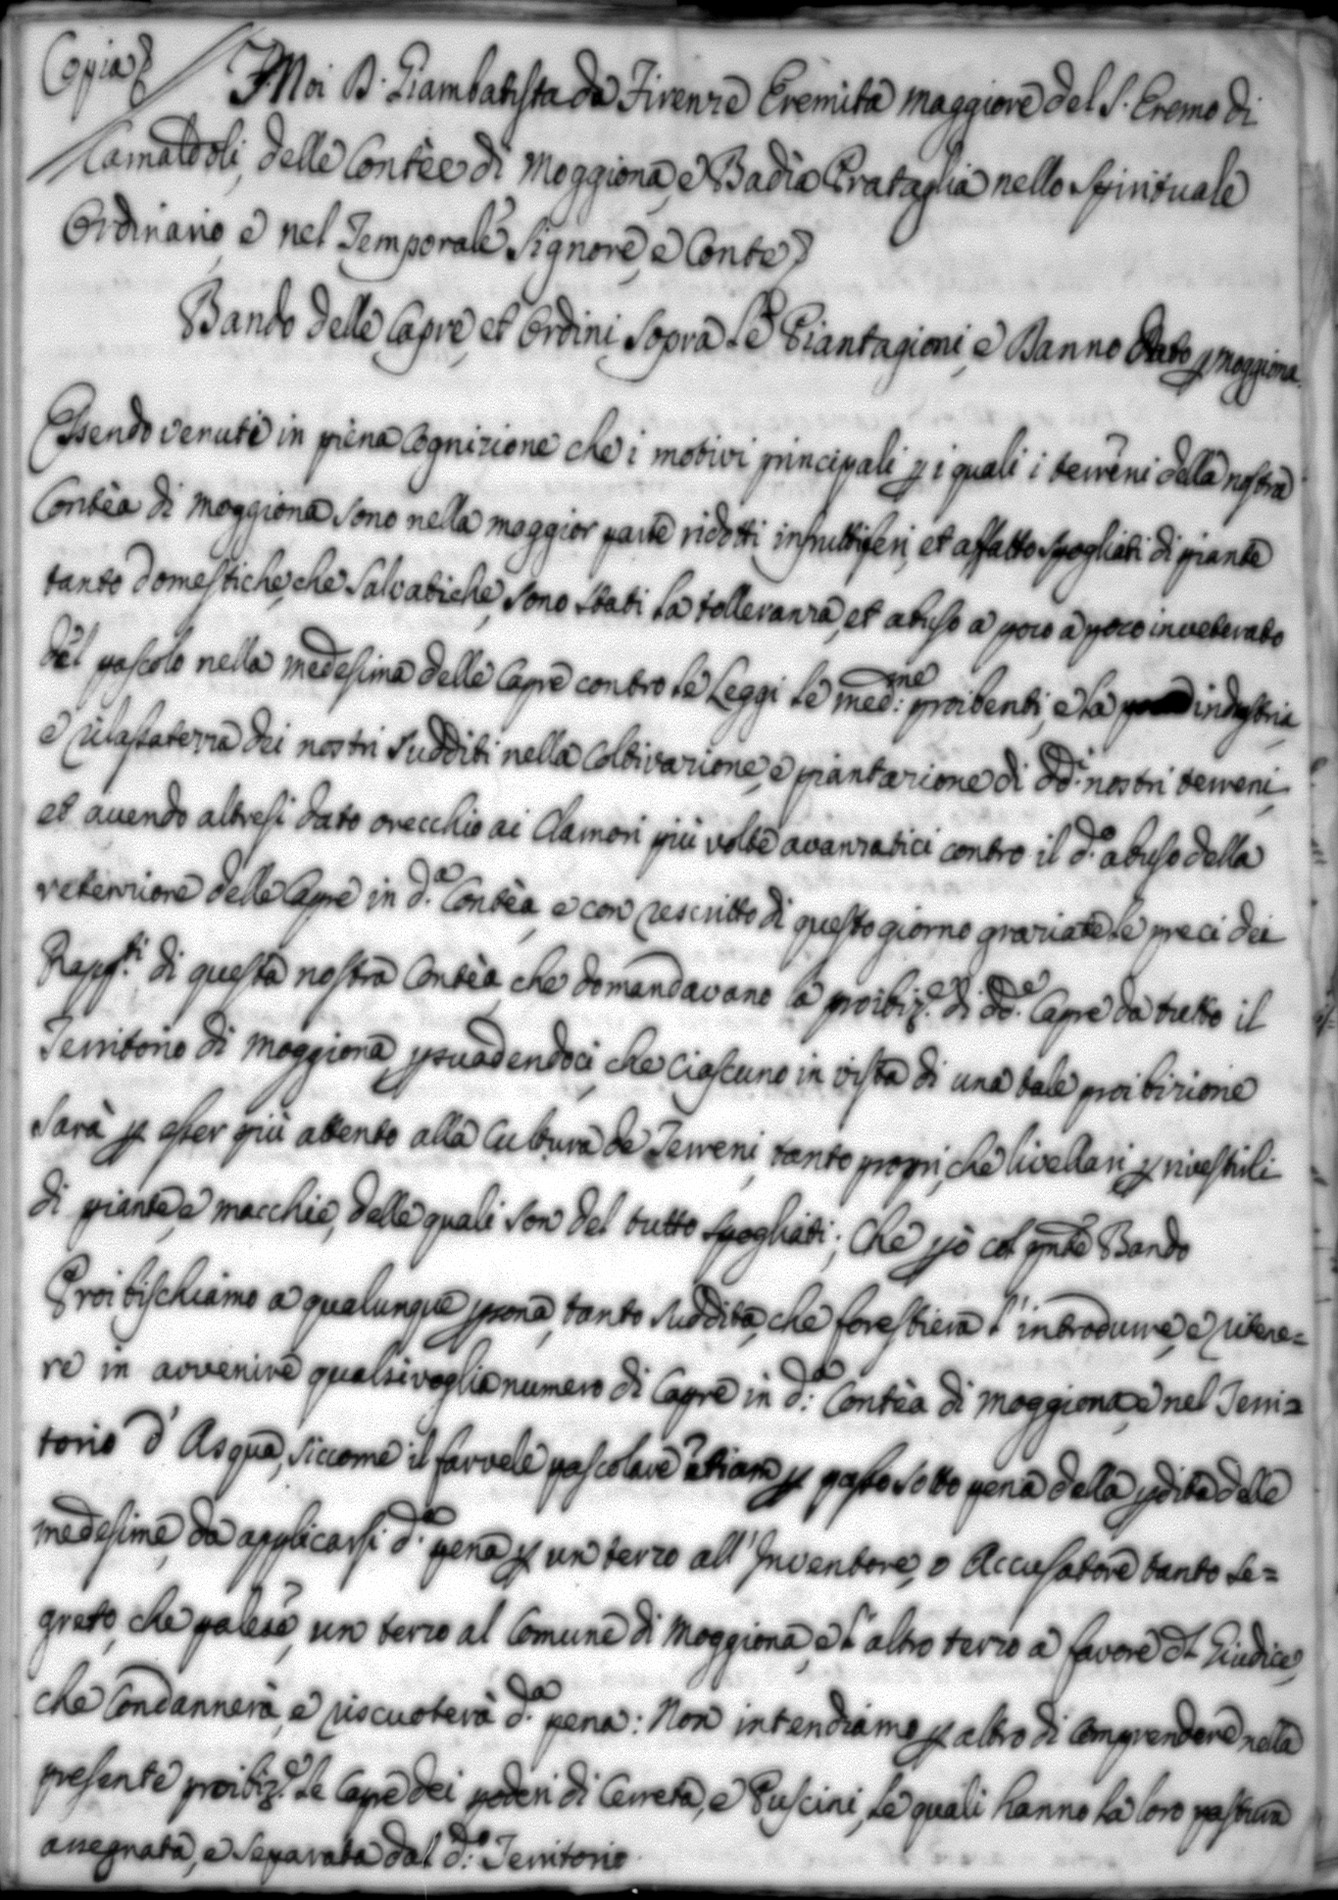 Copia
Noi D. Giambatista da Firenze Eremita maggiore del S. Eremo di
Camaldoli, delle Contèe di Moggiona, e Badìa Prataglia nello spirituale
Ordinario, e nel Temporale Signore, e Conte
Bando delle Capre, et Ordini sopra le Piantagioni, e Banno dato p Moggiona.
Essendo venuti in piena Cognizione che i motivi principali p i quali i terreni della nostra
Contèa di Moggiona sono nella maggior parte ridotti infruttiferi, et affatto spogliati di piante
tanto domestiche, che salvatiche, sono stati la tolleranza, et abuso a poco a poco inveterato
del pascolo nella medesima delle Capre contro le Leggi le med:me proibenti, e la poca industria,
e rilassatezza dei nostri sudditi nella Coltivazione, e piantazione di dd.i nostri terreni,
et avendo altresi dato orecchio ai Clamori più volte avanzatici contro il d.o abuso della
retenzione delle Capre in d.a Contèa, e con rescritto di questo giorno graziate le preci dei
Rapp.ti di questa nostra Contèa, che domandavano la proibiz.e di dd.e Capre da tutto il
Territorio di Moggiona, psuadendoci, che ciascuno in vista di una tale proibizione
sarà p esser più attento alla Cultura de Terreni, tanto propri, che livellari p rivestirli
di piante, e macchie, delle quali son del tutto spogliati; Che pò col pnte Bando
Proibischiamo a qualunque psona, tanto suddita, che forestiera l'introdurre, e ritene=
re in avvenire qualsivoglia numero di Capre in d.a Contèa di Moggiona, e nel Terri=
torio d'Asqua, siccome il farvele pascolare etiam p passo sotto pena della pdita delle
medesime, da applicarsi d.a pena p un terzo all'Inventore, o Accusatore tanto se=
greto, che palese, un terzo al Comune di Moggiona, e l'altro terzo a favore dl Giudice,
che Condannerà, e riscuoterà d.a pena: Non intendiamo p altro di comprendere nella
presente proibiz.e le Capre dei poderi di Cerreta, e Puscini, le quali hanno la loro pastura
assegnata, e separata dal d.o Territorio.